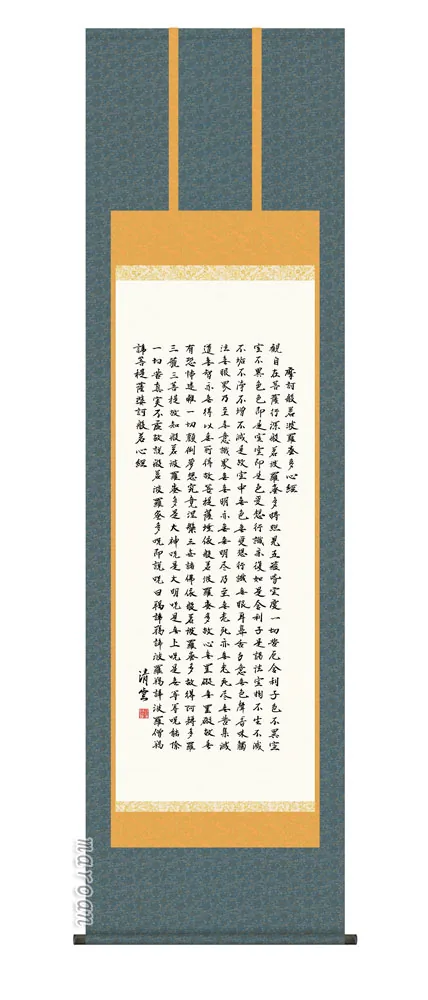 摩訶般若波羅蜜多心經
觀自在菩薩行深般若波羅蜜多時照見五蘊皆空度一切苦厄舍利子色不異空
空不異色色即是空空即是色受想行識亦復如是舍利子是諸法空相不生不滅
不垢不淨不增不減是故空中無色無受想行識無眼耳鼻舌身意無色聲香味觸
法無眼界乃至無意識界無無明亦無無明尽乃至無老死亦無老死尽無苦集滅
道無智亦無得以無所得故菩提薩埵依般若波羅蜜多故心無罣礙無罣礙故無
有恐怖遠離一切顛倒夢想究竟涅槃三世諸佛依般若波羅蜜多故得阿耨多羅
三藐三菩提故知般若波羅蜜多是大神呪是大明呪是無上呪是無等等呪能除
一切苦真実不虚故説般若波羅蜜多呪即説呪曰羯諦羯諦波羅羯諦波羅僧羯
諦菩提薩婆訶般若心經
清雲
maroan